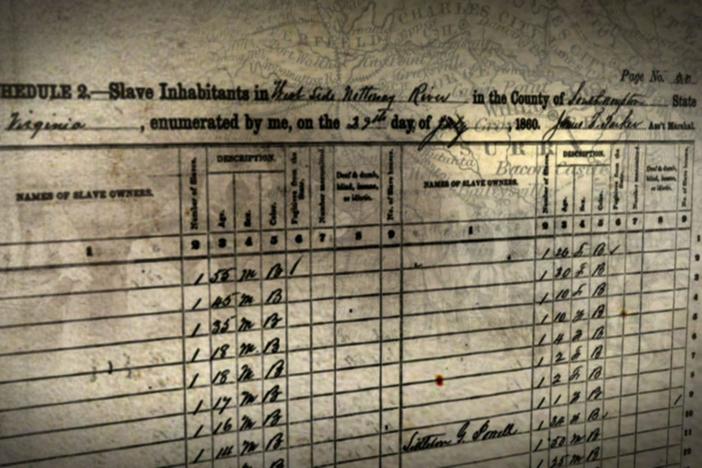 CHARLES CITY
Page No.
HEDULE 2.—Slave Inhabitants in West Side Nottoway River in the County of Southampton State
Virginia, enumerated by me, on the 29th day of July, 1860. James Parker Ass't Marshal.
Bacon Castle
NAMES OF SLAVE OWNERS.
Number of Slaves.
DESCRIPTION.
Age.
Sex.
Color.
Fugitives from the State.
Number manumitted.
Deaf & dumb, blind, insane, or idiotic.
No. of Slave houses.
NAMES OF SLAVE OWNERS.
Number of Slaves.
DESCRIPTION.
Age.
Sex.
Color.
Fugitives from the State.
Number manumitted.
Deaf & dumb, blind, insane, or idiotic.
No. of Slave houses.
1 2 3 4 5 6 7 8 9 1 2 3 4 5 6 7 8 9
1 55 m B 1 26 F B 1
1 45 m B 1 20 F B 2
1 35 m B 1 10 F B 3
1 18 m B 1 10 B 4
1 18 m B 1 4 B 5
1 17 m B 1 2 F B 6
1 16 m B 1 2 F B 7
1 14 m B 1 1 B 8
1 B 1 9
1 50 m B 10
25 m B 11
12